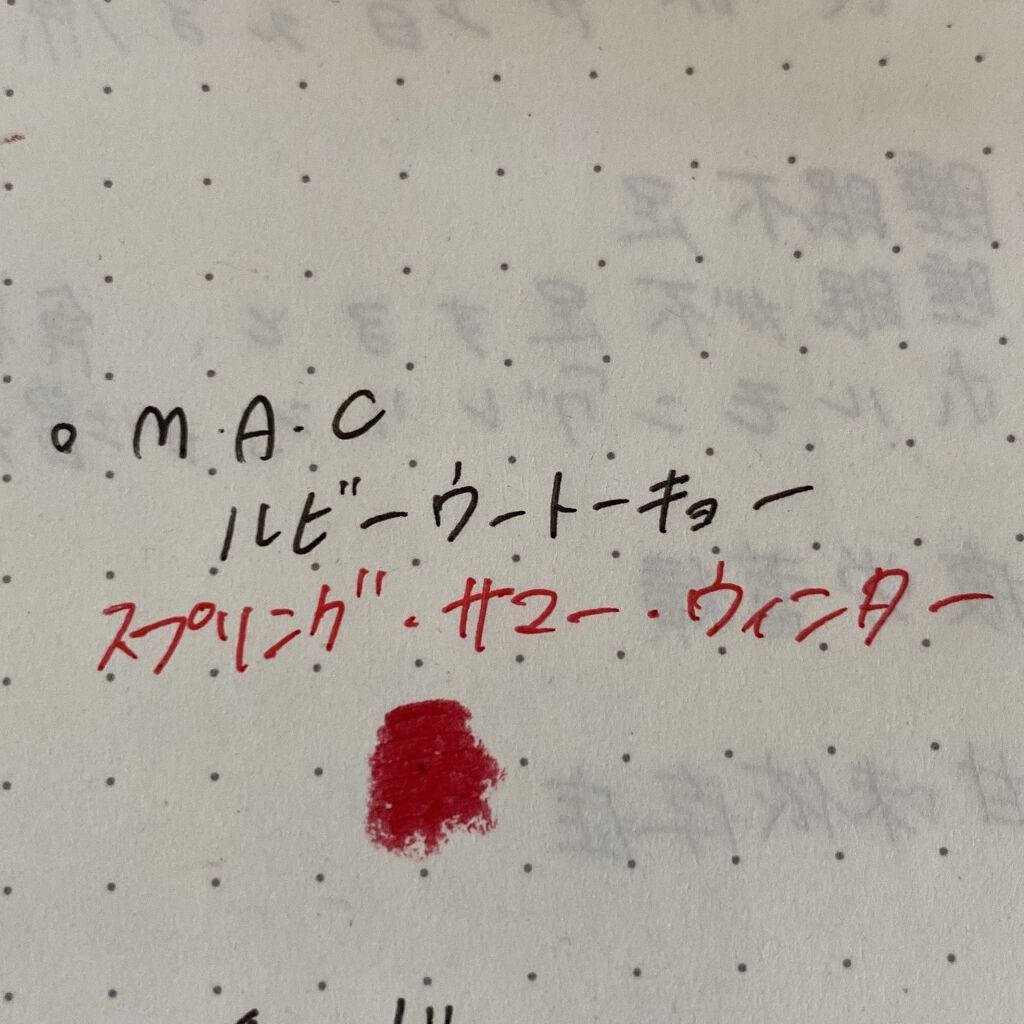 。M.A.C
ルビーウートーキョー
スプリング・サマー・ウィンター